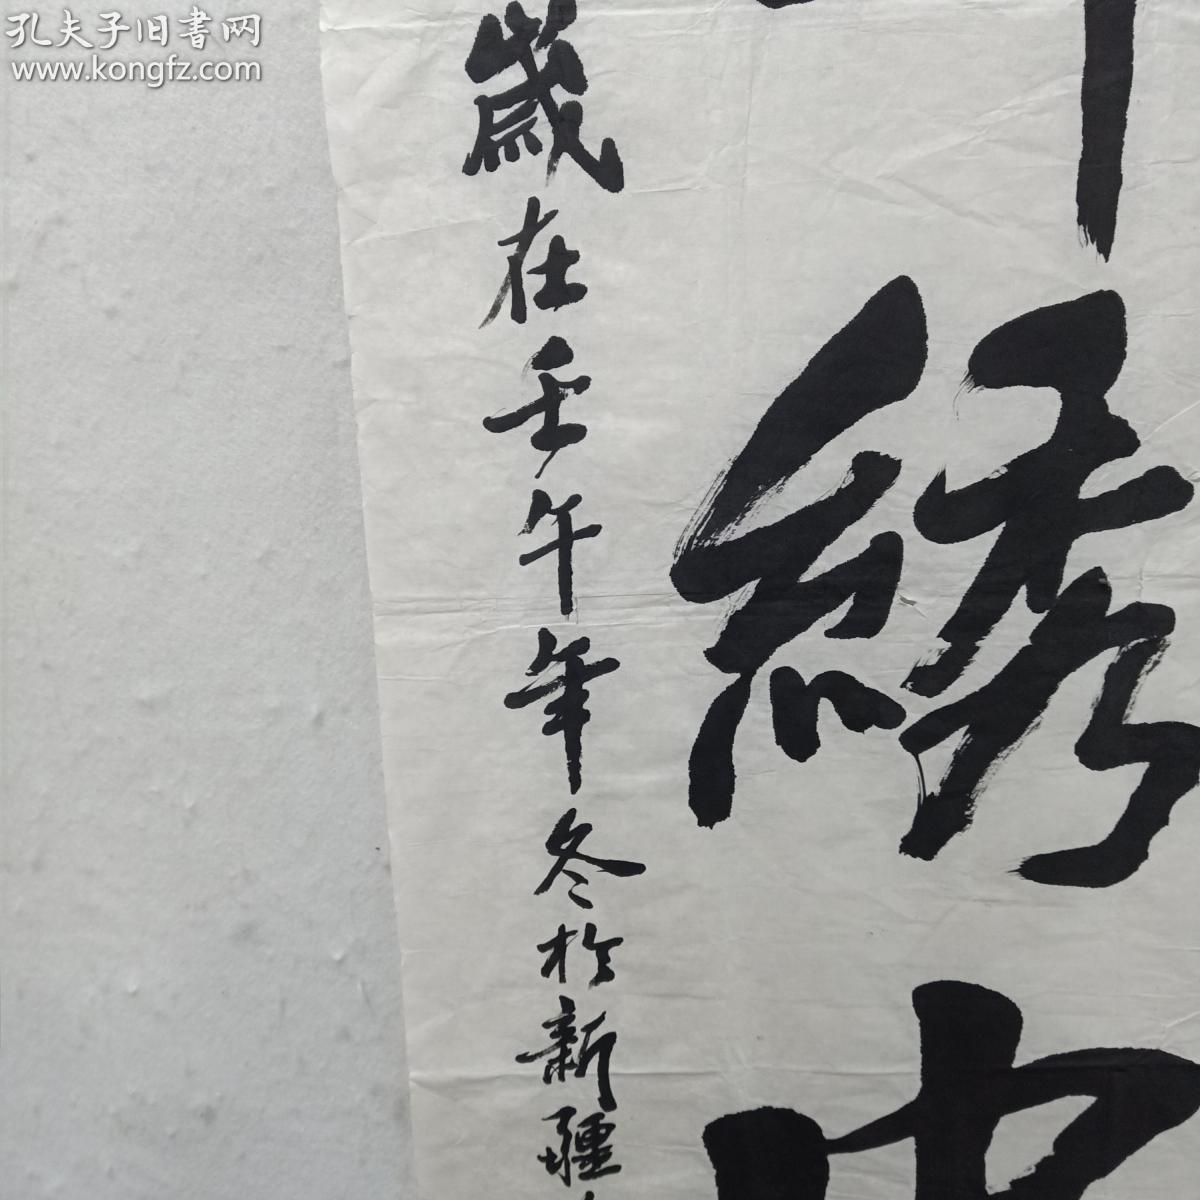 孔夫子旧書网
www.kongfz.com
繡
歲在壬午年冬於新疆